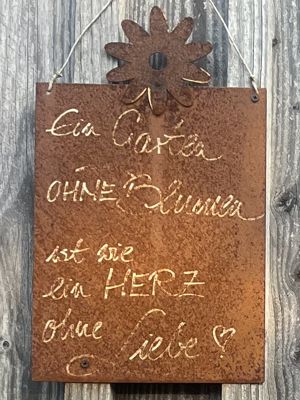 Ein Garten
OHNE Blumen
ist wie
ein HERZ
ohne Liebe ♡